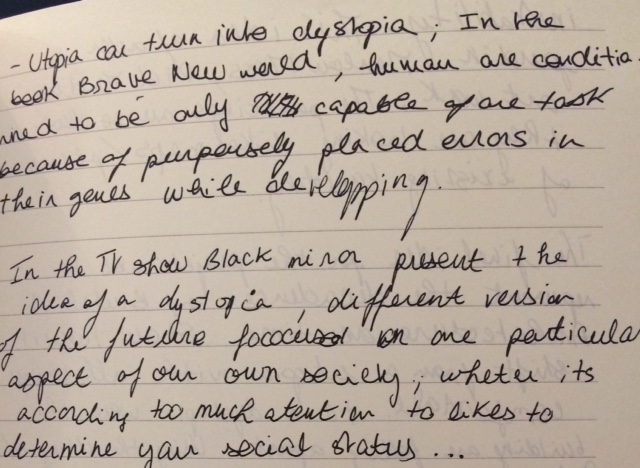 - Utopia can turn into dystopia ; In the
book Brave New world , human are conditia
nned to be only capable of one task
because of purpensely placed errors in
their genes while developping.
In the TV show Black mirror present the
idea of a dystopia , different version
of the future fococused on one particular
aspect of our own society ; wheter its
according too much atention to likes to
determine your social status ...